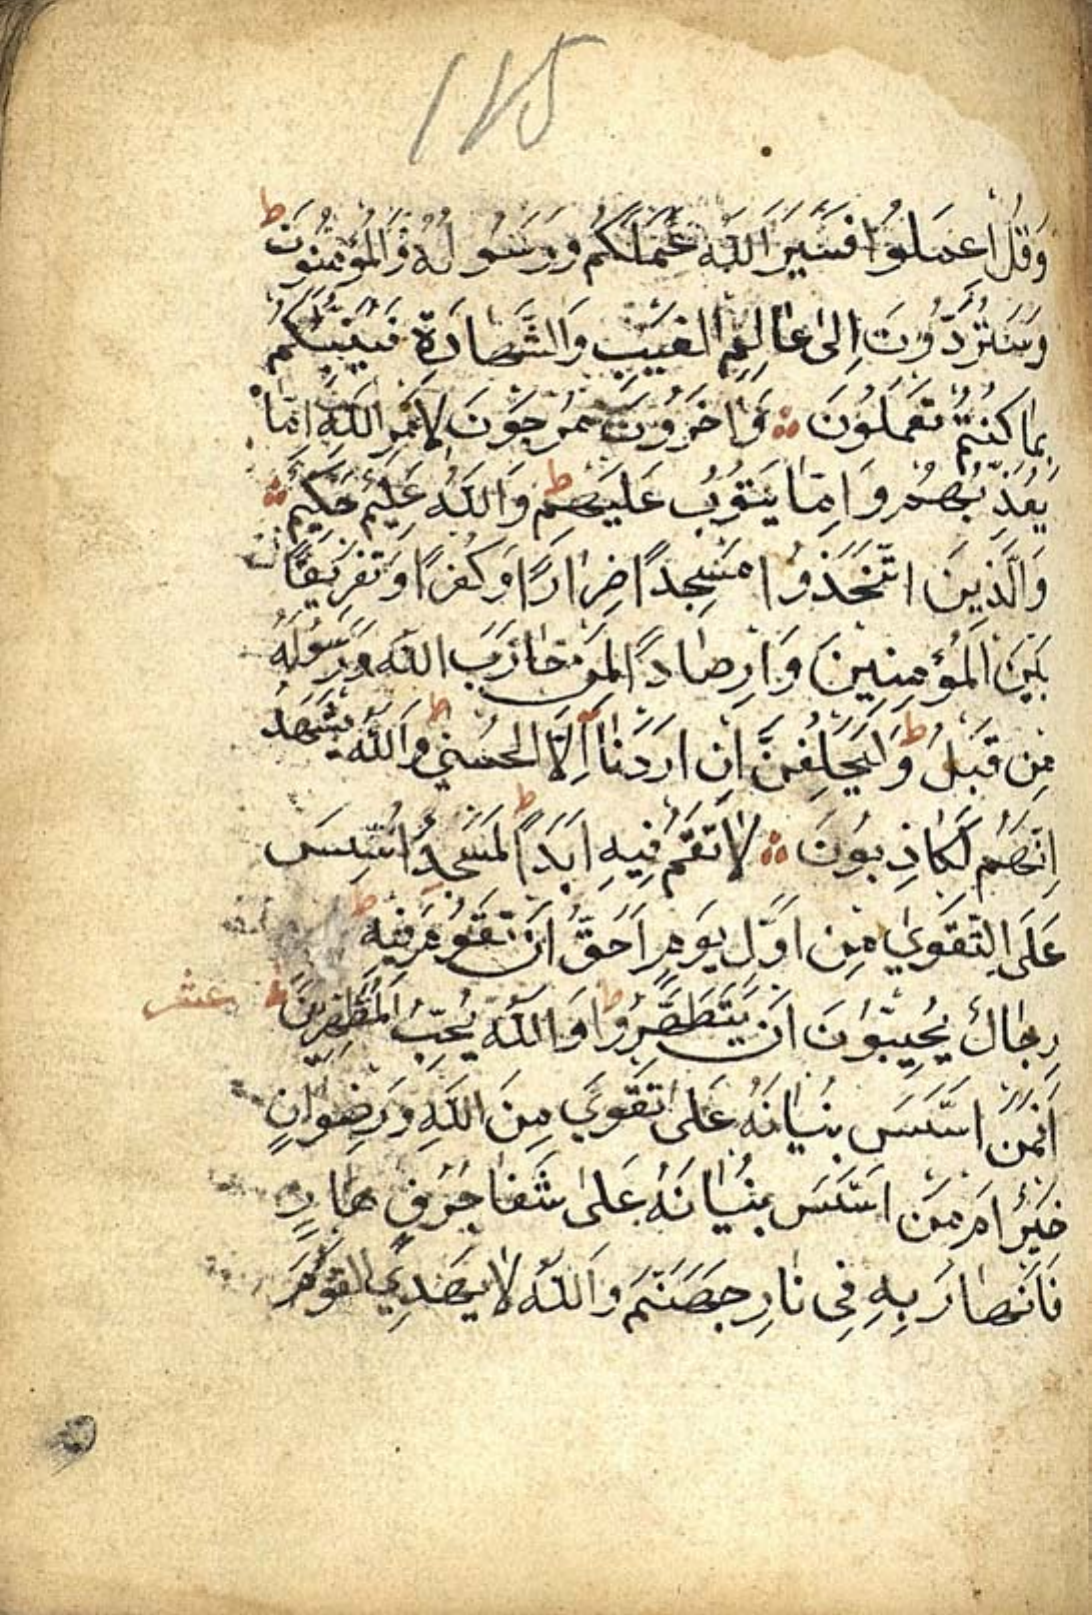 115
وَقُلِ اعمَلُوا فَسَيَرَ اللّٰه عَمَلَكُم وَرَسُولُهُ وَالمُؤمِنُونَ ط
وَسَتُرَدُّونَ اِلىٰ عَالِمِ الغَيبِ وَالشَّهَادَةِ فَيُنَبِّئُكُم
بِمَا كُنتُم تَعمَلُونَ وَاٰخَرُونَ مُرجَونَ لِاَمرِ اللّٰهِ اِمَّا
يُعَذِّبُهُم وَاِمَّا يَتُوبُ عَلَيهِم ط وَاللّٰهُ عَلِيمٌ حَكِيمٌ
وَالَّذِينَ اتَّخَذُوا مَسجِدًا ضِرَارًا وَكُفرًا وَتَفرِيقًا
بَينَ المُؤمِنِينَ وَاِرصَادًا لِمَن حَارَبَ اللّٰه وَرَسُولَهُ
مِن قَبلُ ط وَلَيَحلِفُنَّ اِن اَرَدنَا اِلَّا الحُسنىٰ ط وَاللّٰهُ يَشهَدُ
اِنَّهُم لَكَاذِبُونَ لَا تَقُم فِيهِ اَبَدًا ط لَمَسجِدٌ اُسِّسَ
عَلَى التَّقوىٰ مِن اَوَّلِ يَومٍ اَحَقُّ اَن تَقُومَ فِيهِ ط
رِجَالٌ يُحِبُّونَ اَن يَتَطَهَّرُوا ط وَاللّٰهُ يُحِبُّ المُطَّهِّرِينَ عشر
اَفَمَن اَسَّسَ بُنيَانَهُ عَلىٰ تَقوىٰ مِنَ اللّٰهِ وَرِضوَانٍ
خَيرٌ اَم مَن اَسَّسَ بُنيَانَهُ عَلىٰ شَفَا جُرُفٍ هَارٍ
فَانهَارَ بِهِ فِى نَارِ جَهَنَّمَ وَاللّٰهُ لَا يَهدِي القَومَ